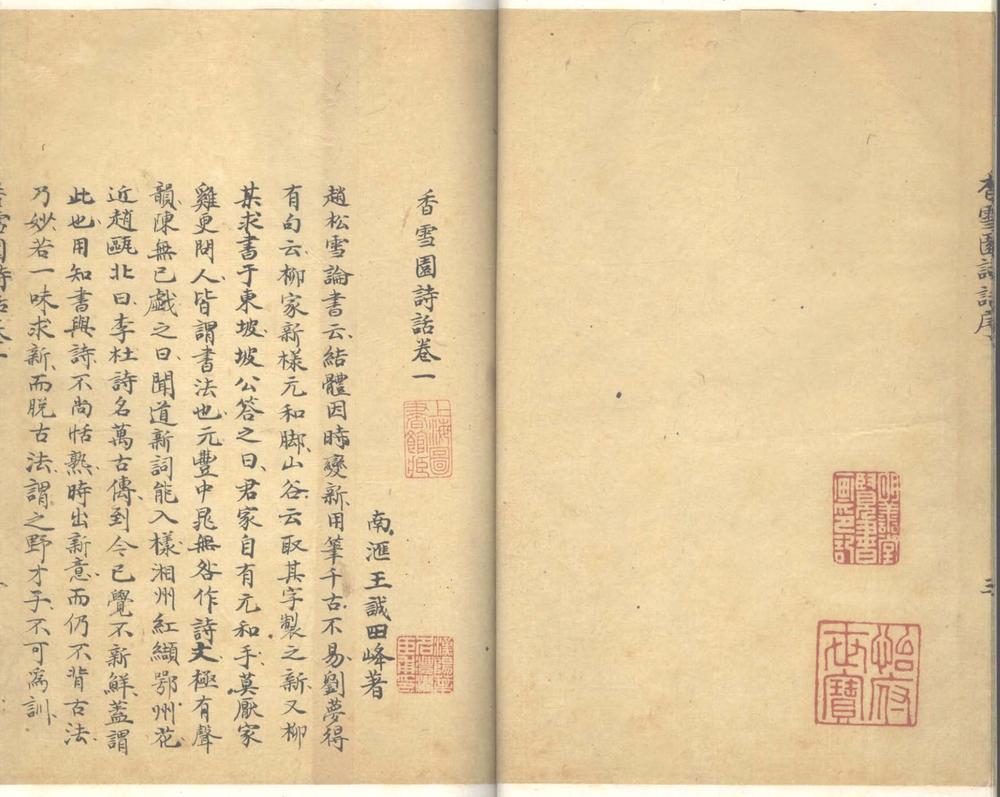 香雪園詩話序
明善堂
覽書
畫印記
怡府
世寶
香雪園詩話卷一
上海圖
書館藏
南滙王誠田峰著
趙松雪論書云結體因時變新用筆千古不易劉夢得
有句云柳家新樣元和脚山谷云取其字製之新又柳
某求書于東坡坡公答之曰君家自有元和手莫厭家
雞更問人皆謂書法也元豐中晁無咎作詩文極有聲
韻陳無已戲之曰聞道新詞能入樣湘州紅纈鄂州花
近趙甌北曰李杜詩名萬古傳到今已覺不新鮮蓋謂
此也用知書與詩不尚恬熟時出新意而仍不背古法
乃妙若一味求新而脱古法謂之野才子不可爲訓
香雪園詩話卷一